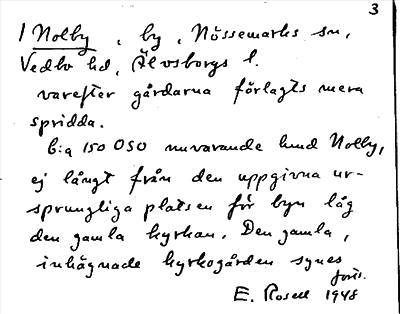 3
1 Nolby, by, Nössemarks sn,
Vedbo hd, Älvsborgs l.
varefter gårdarna förlagts mera
spridda.
C:a 150 OSO nuvarande Lund Nolby,
ej långt från den uppgivna ur-
sprungliga platsen för byn låg
den gamla kyrkan. Den gamla,
inhägnade kyrkogården synes
forts.
E. Rosell 1948